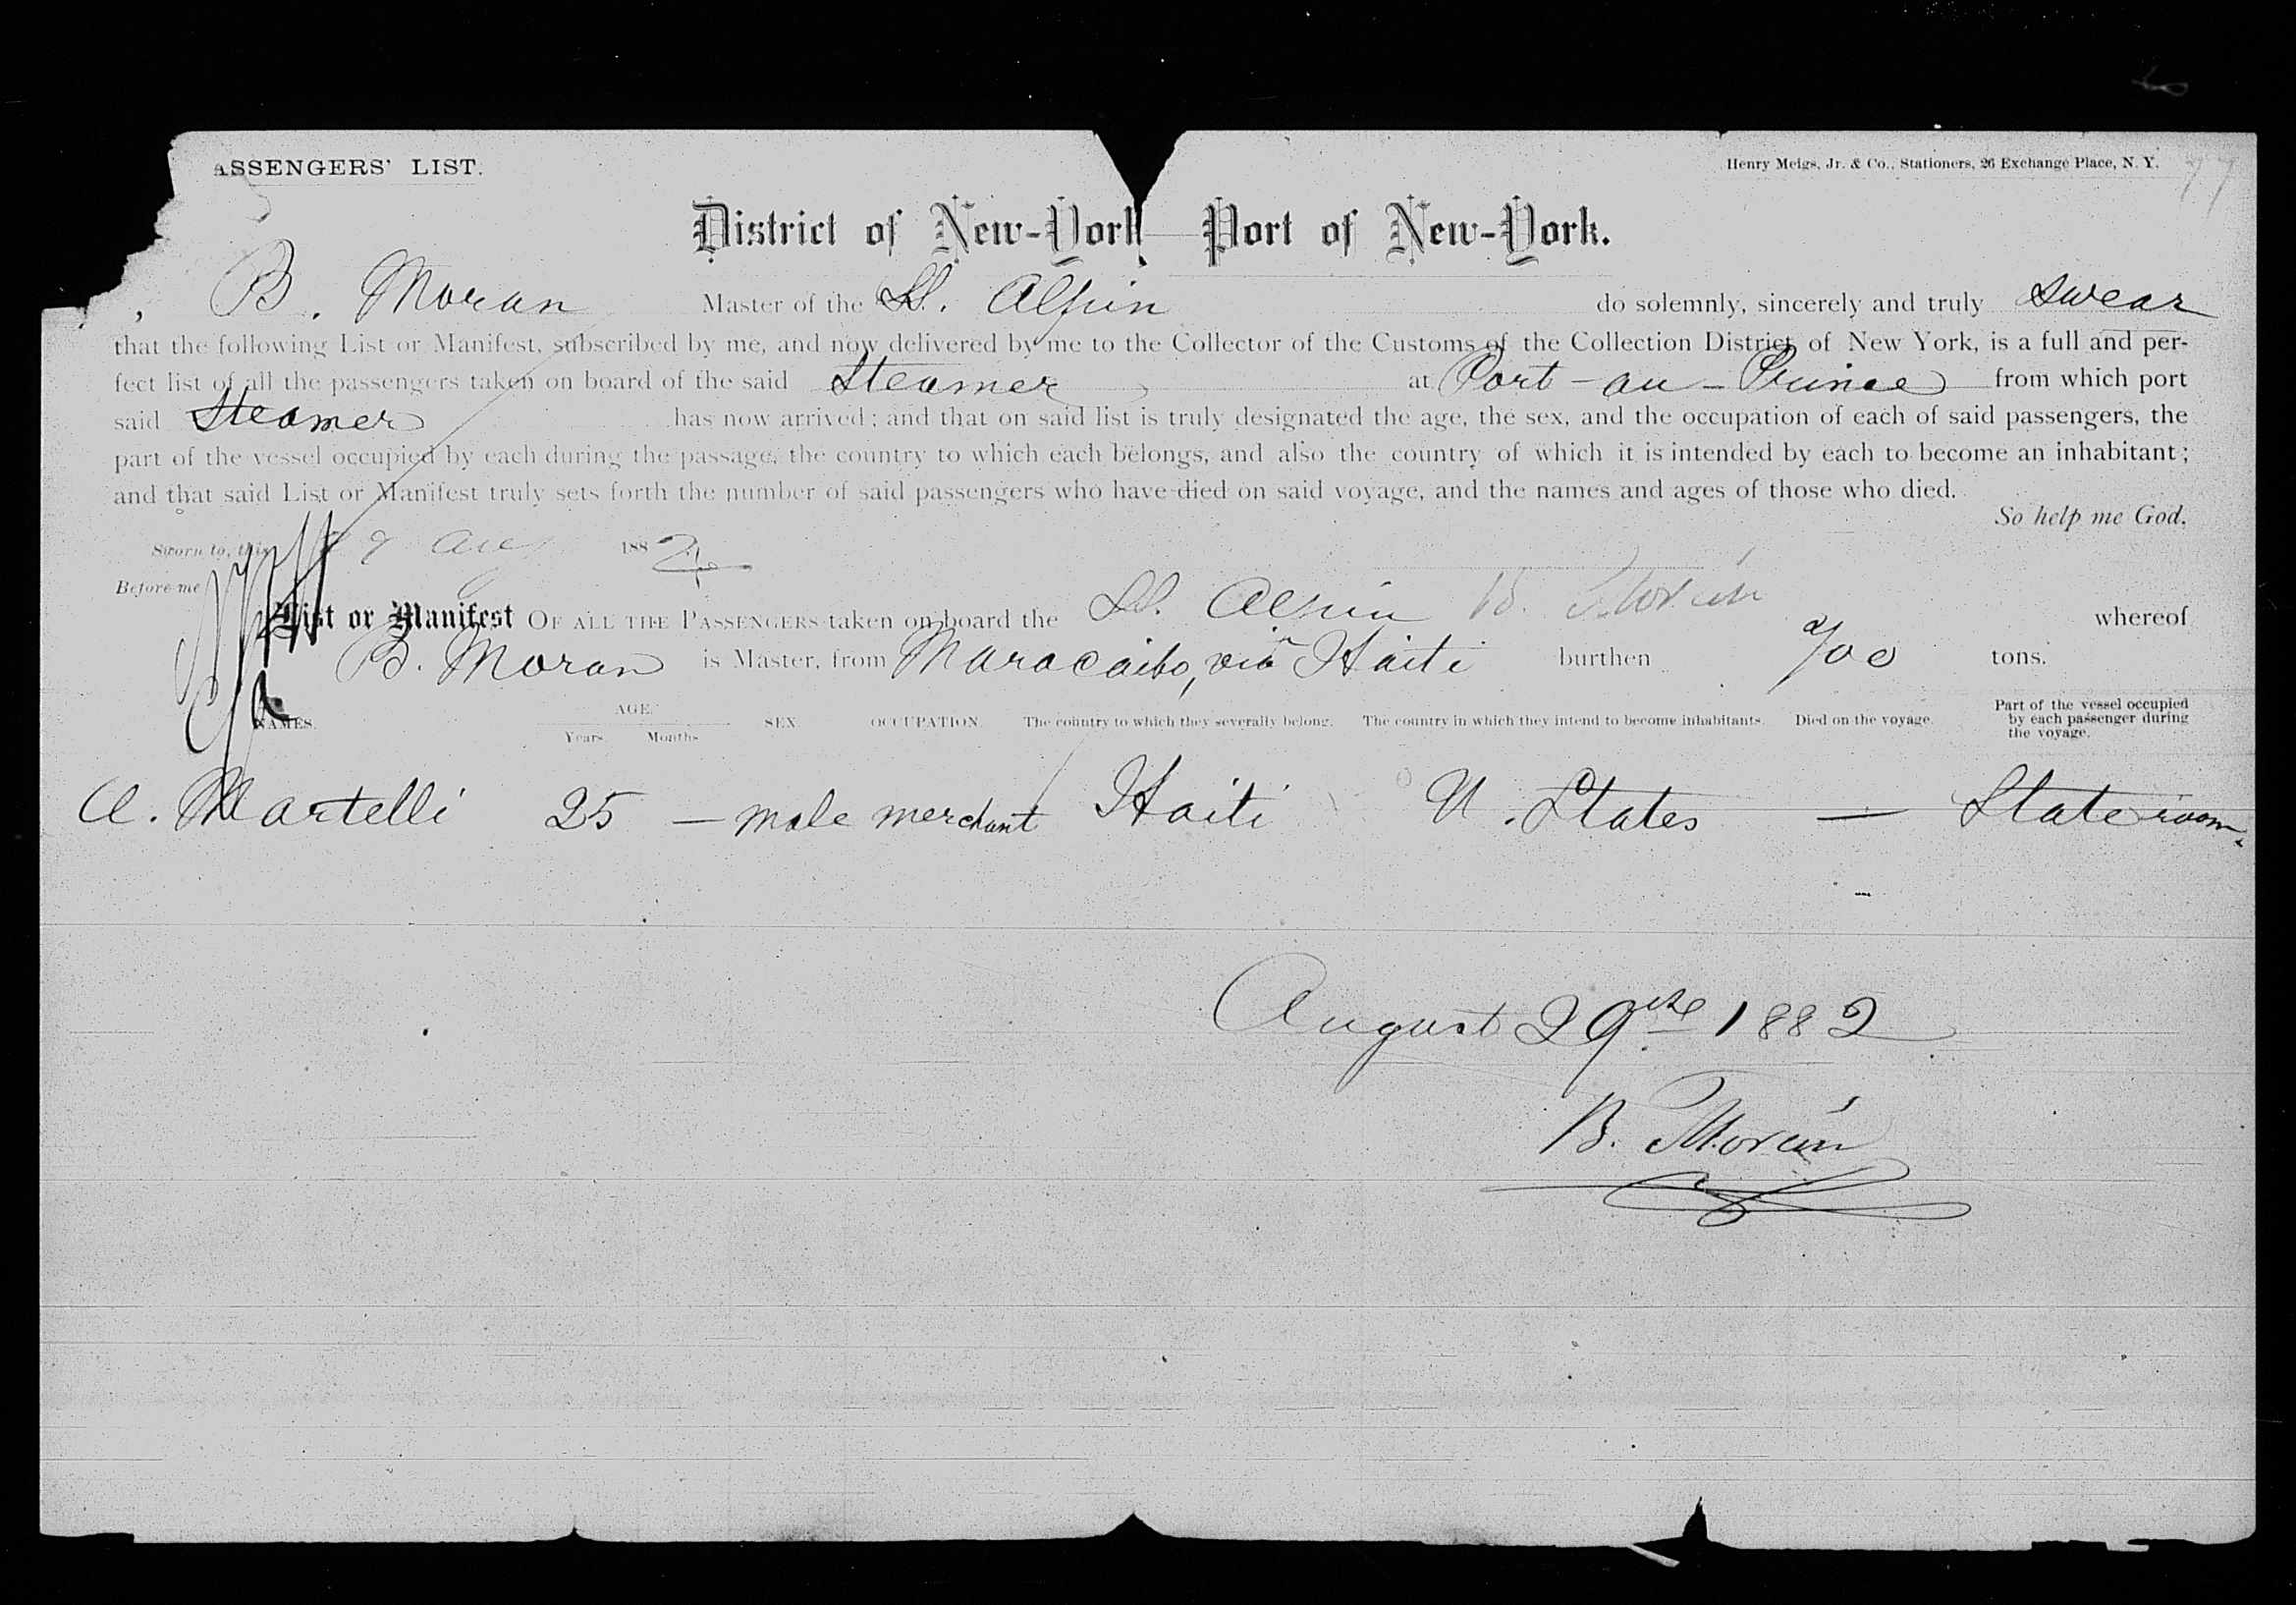 ASSENGERS' LIST.
Henry Meigs, Jr. & Co., Stationers, 26 Exchange Place, N. Y.
District of New-York Port of New-York.
B. Moran Master of the SS. Alpin do solemnly, sincerely and truly swear
that the following List or Manifest, subscribed by me, and now delivered by me to the Collector of the Customs of the Collection District of New York, is a full and per-
fect list of all the passengers taken on board of the said Steamer at Port-au-Prince from which port
said Steamer has now arrived; and that on said list is truly designated the age, the sex, and the occupation of each of said passengers, the
part of the vessel occupied by each during the passage, the country to which each belongs, and also the country of which it is intended by each to become an inhabitant;
and that said List or Manifest truly sets forth the number of said passengers who have died on said voyage, and the names and ages of those who died.
So help me God.
Sworn to, this 29 Aug 1882
Before me
B. Morán
List or Manifest OF ALL THE PASSENGERS taken on board the SS. Alpin whereof
B. Moran is Master, from Maracaibo, via Haiti burthen 700 tons.
NAMES. AGE. Years Months SEX. OCCUPATION. The country to which they severally belong. The country in which they intend to become inhabitants. Died on the voyage. Part of the vessel occupied by each passenger during the voyage.
A. Martelli 25 — male merchant Haiti U. States — Stateroom.
August 29th 1882
B. Morán